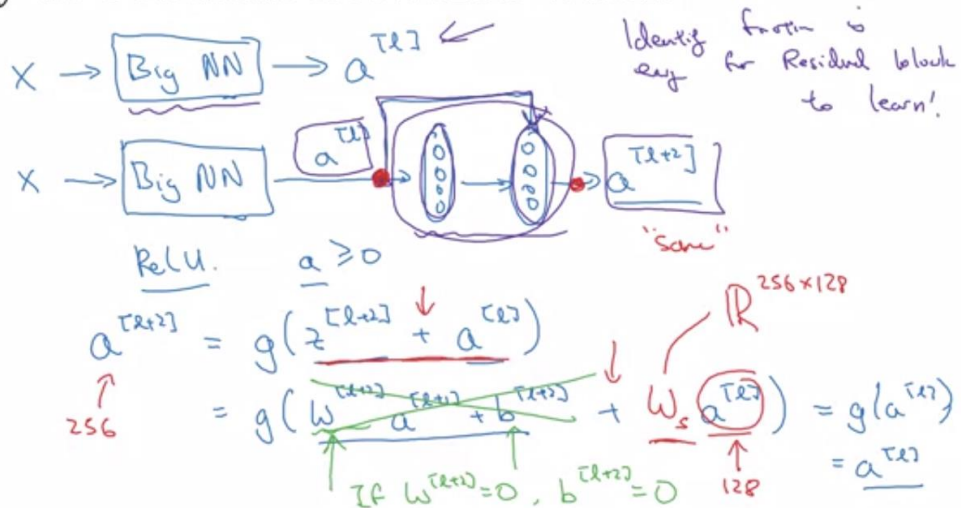 X → Big NN → a^[l] ←
Identity function is
easy for Residual block
to learn!
X → Big NN → a^[l] → → a^[l+2]
"same"
ReLU. a ≥ 0
a^[l+2] = g(z^[l+2] + a^[l])
256
ℝ^256×128
= g(W^[l+2] a^[l+1] + b^[l+2] + W_s a^[l]) = g(a^[l])
= a^[l]
If W^[l+2]=0, b^[l+2]=0
128